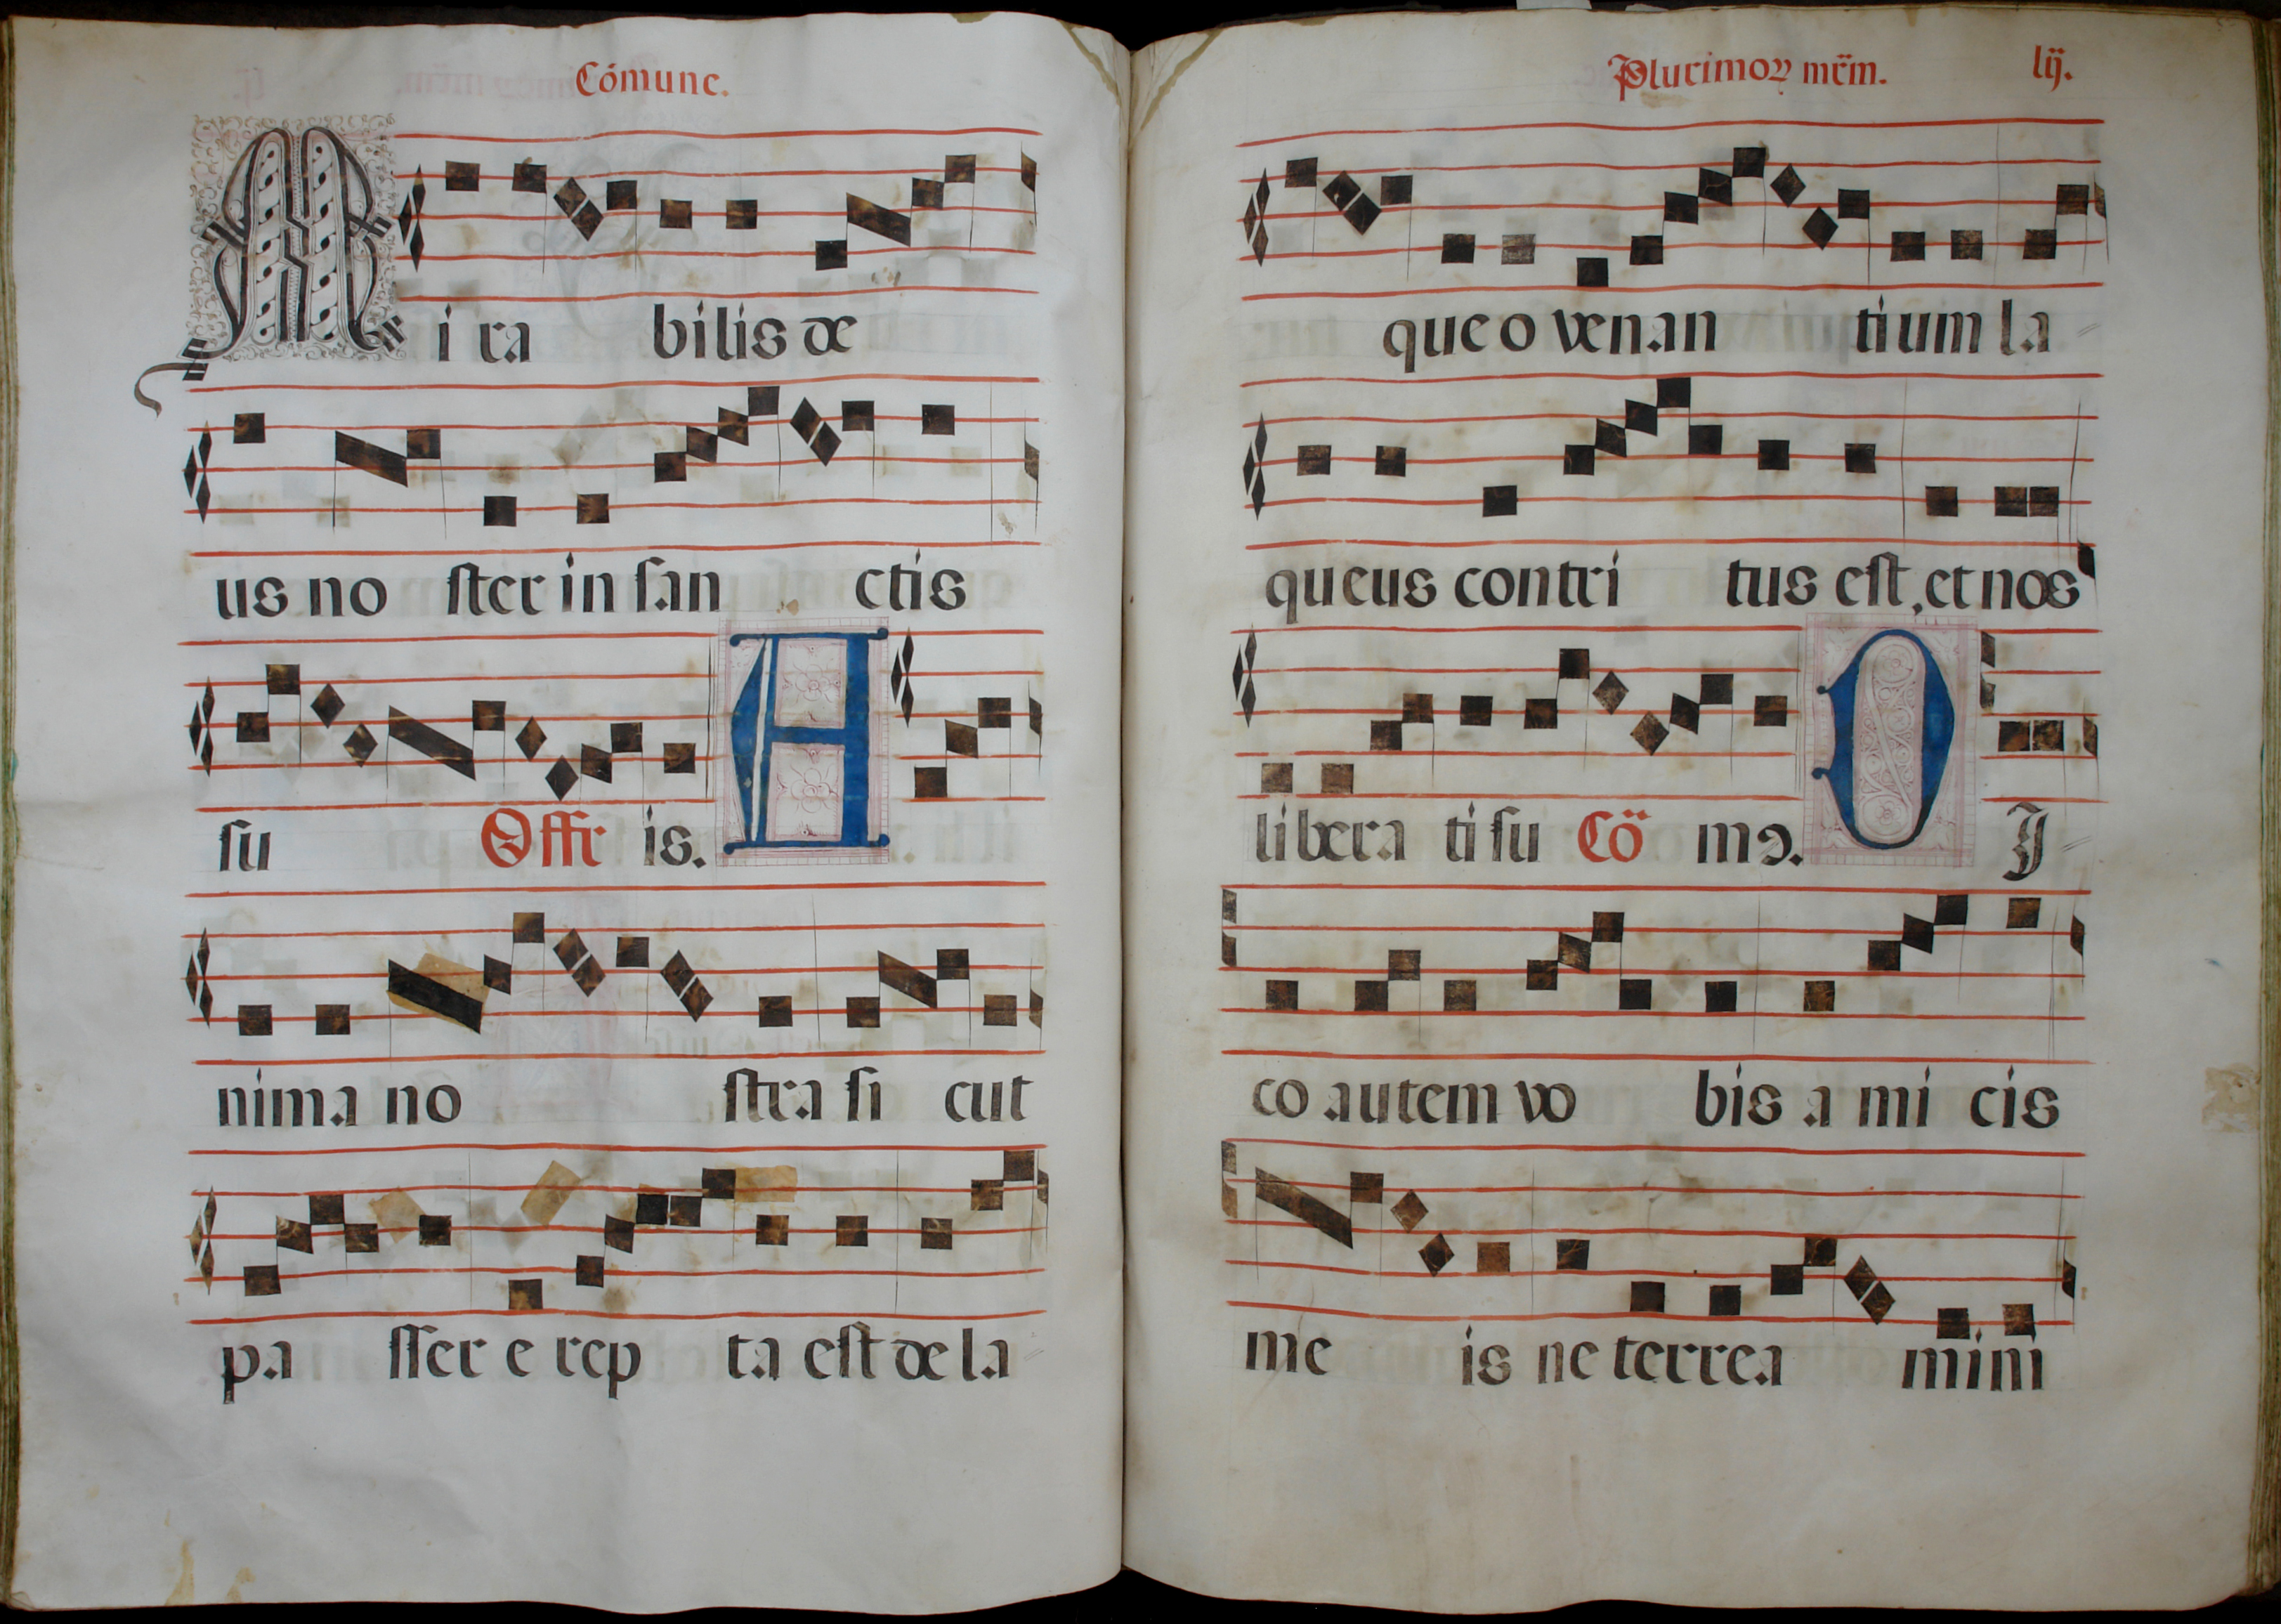 Cómune.
M i ra bilis de
us no ster in san ctis
su Offr is. A
nima no stra si cut
pa sser e rep ta est de la
Plurimoꝝ mr̃m. lij.
que o venan tium la
queus contri tus est, et nos
libera ti su Cō mꝰ. D I
co autem vo bis a mi cis
me is ne terrea mini